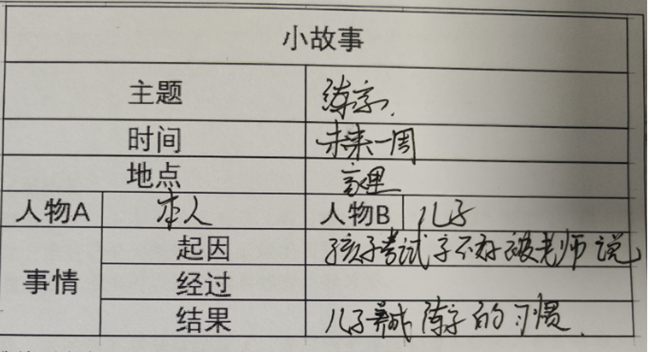 小故事
主题 练字.
时间 未来一周
地点 家里
人物A 本人 人物B 儿子
事情 起因 孩子考试字不好被老师说
经过
结果 儿子养成练字的习惯.